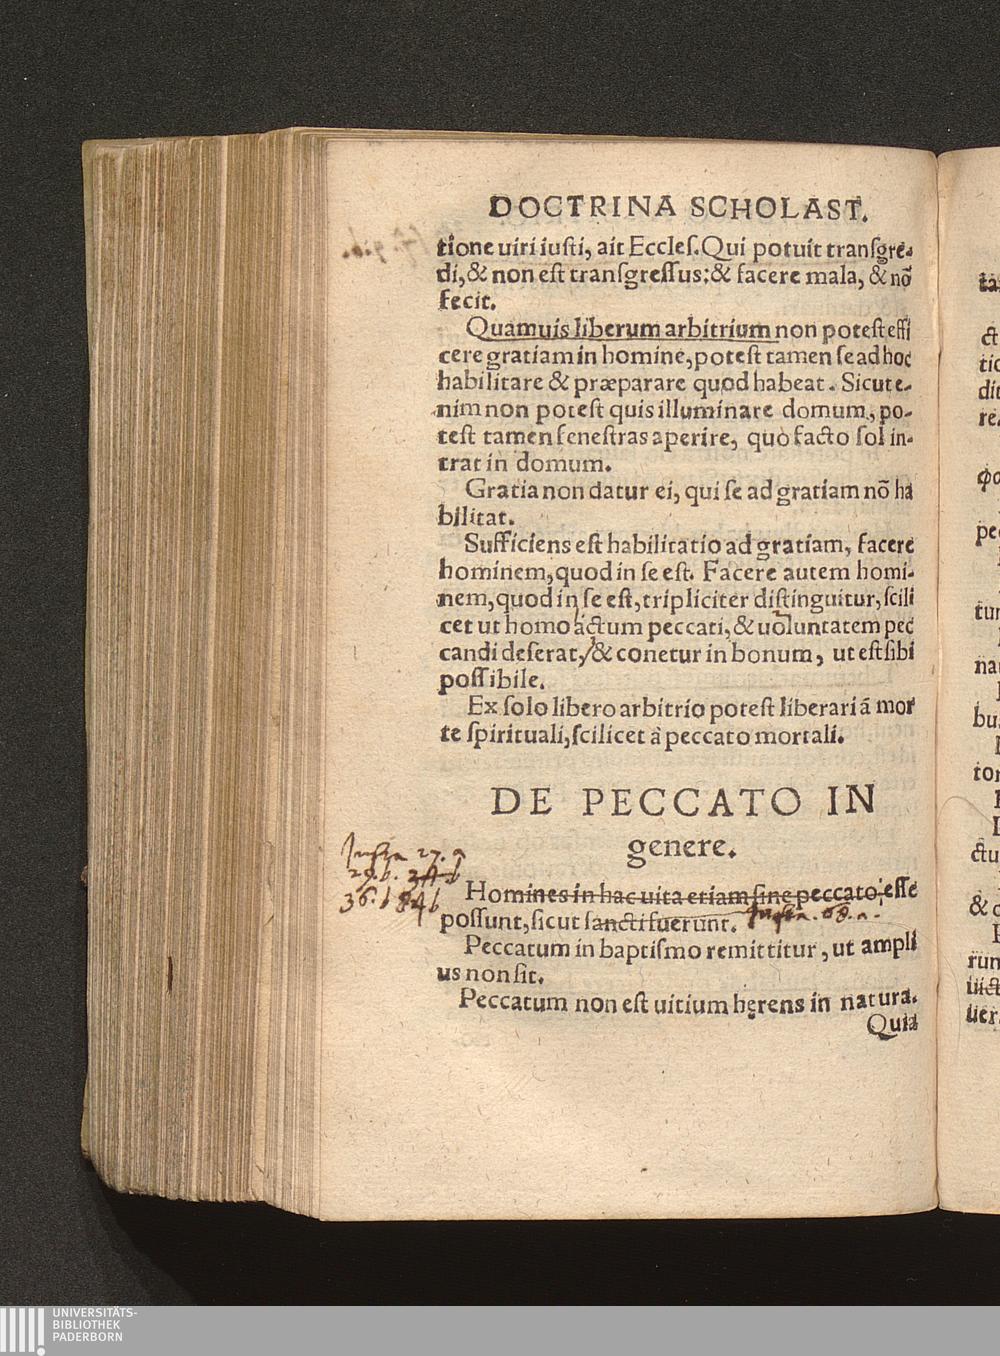 DOCTRINA SCHOLAST.
tione uiri iusti, ait Eccles. Qui potuit transgre-
di, & non est transgressus: & facere mala, & nō
fecit.
Quamuis liberum arbitrium non potest effi
cere gratiam in homine, potest tamen se ad hoc
habilitare & præparare quod habeat. Sicut e-
nim non potest quis illuminare domum, po-
test tamen fenestras aperire, quo facto sol in-
trat in domum.
Gratia non datur ei, qui se ad gratiam nō ha
bilitat.
Sufficiens est habilitatio ad gratiam, facere
hominem, quod in se est. Facere autem homi-
nem, quod in se est, tripliciter distinguitur, scili
cet ut homo actum peccati, & uoluntatem pec
candi deserat, & conetur in bonum, ut est sibi
possibile.
Ex solo libero arbitrio potest liberari à mor
te spirituali, scilicet à peccato mortali.
DE PECCATO IN
genere.
Infra 27. a
29. b. 31. b
36. b 84 b
Homines in hac uita etiam sine peccato, esse
possunt, sicut sancti fuerunt. Infra. 68. a.
Peccatum in baptismo remittitur, ut ampli
us non sit.
Peccatum non est uitium hęrens in natura.
Quia
UNIVERSITÄTS-
BIBLIOTHEK
PADERBORN